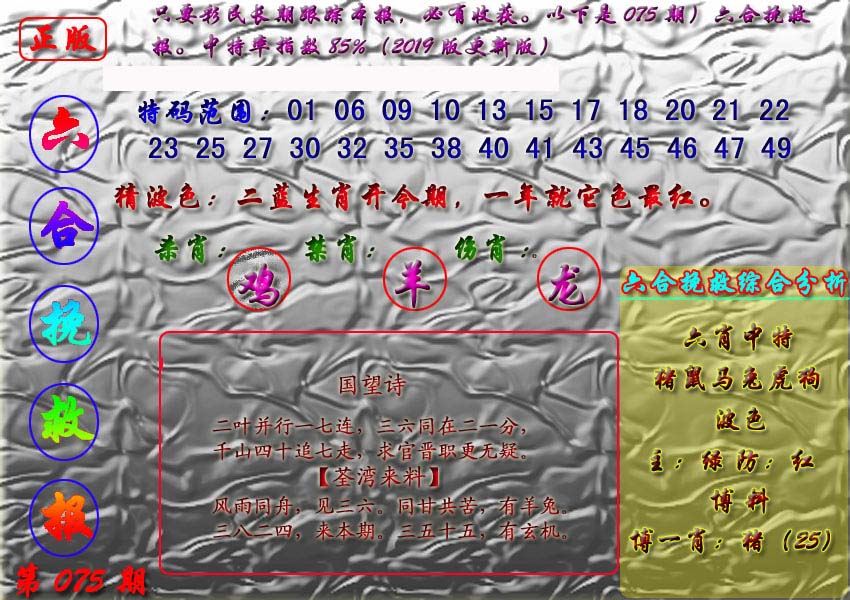 正版
只要彩民长期跟踪本报，必有收获。以下是075期）六合挽救
报。中特率指数85%（2019版更新版）
特码范围：01 06 09 10 13 15 17 18 20 21 22
23 25 27 30 32 35 38 40 41 43 45 46 47 49
猜波色：二蓝生肖开今期，一年就它色最红。
杀肖：鸡 禁肖：羊 伤肖：。龙
六
合
挽
救
报
第075期
国望诗
二叶并行一七连，三六同在二一分，
千山四十追七走，求官晋职更无疑。
【荃湾来料】
风雨同舟，见三六。同甘共苦，有羊兔。
三八二四，来本期。三五十五，有玄机。
六合挽救综合分析
六肖中特
猪鼠马兔虎狗
波色
主：绿防：红
博料
博一肖：猪（25）